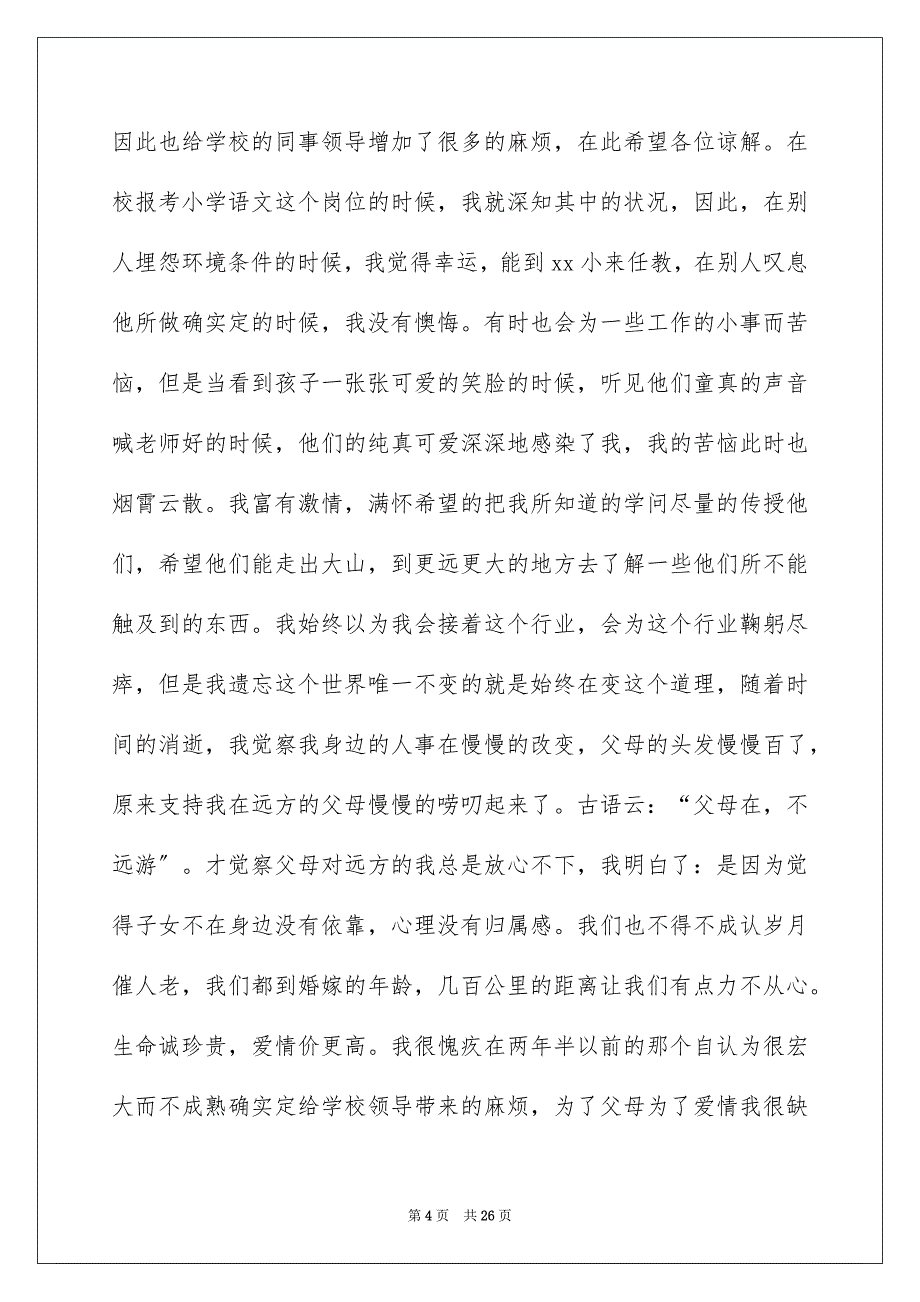 因此也给学校的同事领导增加了很多的麻烦，在此希望各位谅解。在
校报考小学语文这个岗位的时候，我就深知其中的状况，因此，在别
人埋怨环境条件的时候，我觉得幸运，能到 xx 小来任教，在别人叹息
他所做确实定的时候，我没有懊悔。有时也会为一些工作的小事而苦
恼，但是当看到孩子一张张可爱的笑脸的时候，听见他们童真的声音
喊老师好的时候，他们的纯真可爱深深地感染了我，我的苦恼此时也
烟霄云散。我富有激情，满怀希望的把我所知道的学问尽量的传授他
们，希望他们能走出大山，到更远更大的地方去了解一些他们所不能
触及到的东西。我始终以为我会接着这个行业，会为这个行业鞠躬尽
瘁，但是我遗忘这个世界唯一不变的就是始终在变这个道理，随着时
间的消逝，我觉察我身边的人事在慢慢的改变，父母的头发慢慢百了，
原来支持我在远方的父母慢慢的唠叨起来了。古语云：“父母在，不
远游〞。才觉察父母对远方的我总是放心不下，我明白了：是因为觉
得子女不在身边没有依靠，心理没有归属感。我们也不得不成认岁月
催人老，我们都到婚嫁的年龄，几百公里的距离让我们有点力不从心。
生命诚珍贵，爱情价更高。我很愧疚在两年半以前的那个自认为很宏
大而不成熟确实定给学校领导带来的麻烦，为了父母为了爱情我很缺
第 4 页 共 26 页